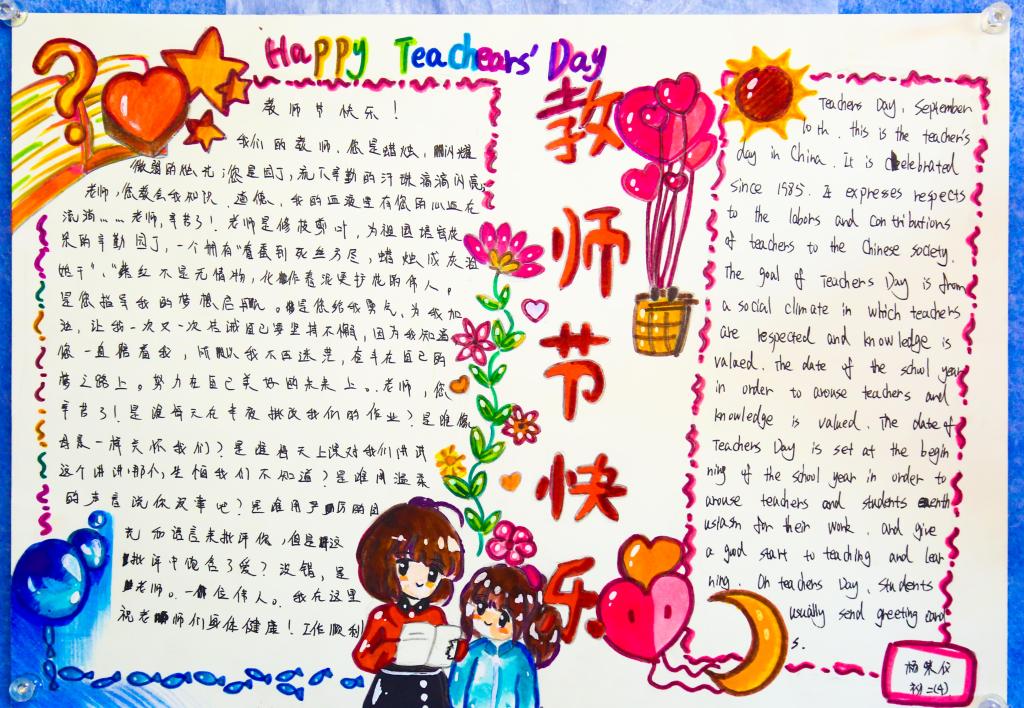 Happy Teachears' Day
教师节快乐
教师节快乐！
我们的教师，您是蜡烛，闪耀
微弱的烛光；您是园丁，流下辛勤的汗珠滴滴闪亮；
老师，您教会我知识、道德，我的血液里有您的心血在
流淌……老师，辛苦了！老师是修枝剪叶，为祖国培育成
果的辛勤园丁，一个拥有“春蚕到死丝方尽，蜡烛成灰泪
始干”、“落红不是无情物，化作春泥更护花的伟人。
是您指导我的梦想启航。是您给我勇气，为我加
油，让我一次又一次告诫自己要坚持不懈，因为我知道
您一直陪着我，所以我不再迷茫，奋斗在自己的
梦之路上。努力在自己美好的未来上。老师，您
辛苦了！是谁每天在半夜批改我们的作业？是谁像
母亲一样关怀我们？是谁每天上课对我们讲讲
这个讲讲那个，生怕我们不知道？是谁用温柔
的声音说你没事吧？是谁用严厉的目
光和语言来批评你，但是这
批评中饱含了爱？没错，是
老师。一位伟人。我在这里
祝老师们身体健康！工作顺利
Teachers Day, September
10th. this is the teacher's
day in China. It is celebrated
since 1985. It expreses respects
to the labors and contributions
of teachers to the Chinese society.
The goal of Teachers Day is from
a social climate in which teachers
are respected and knowledge is
valued. The date of the school year
in order to arouse teachers and
knowledge is valued. The date of
Teachers Day is set at the begin
ning of the school year in order to
arouse teachers and students enth
usiasn for their work, and give
a good start to teaching and lear
ning. On teachers Day, students
usually send greeting card
s.
初二(4)